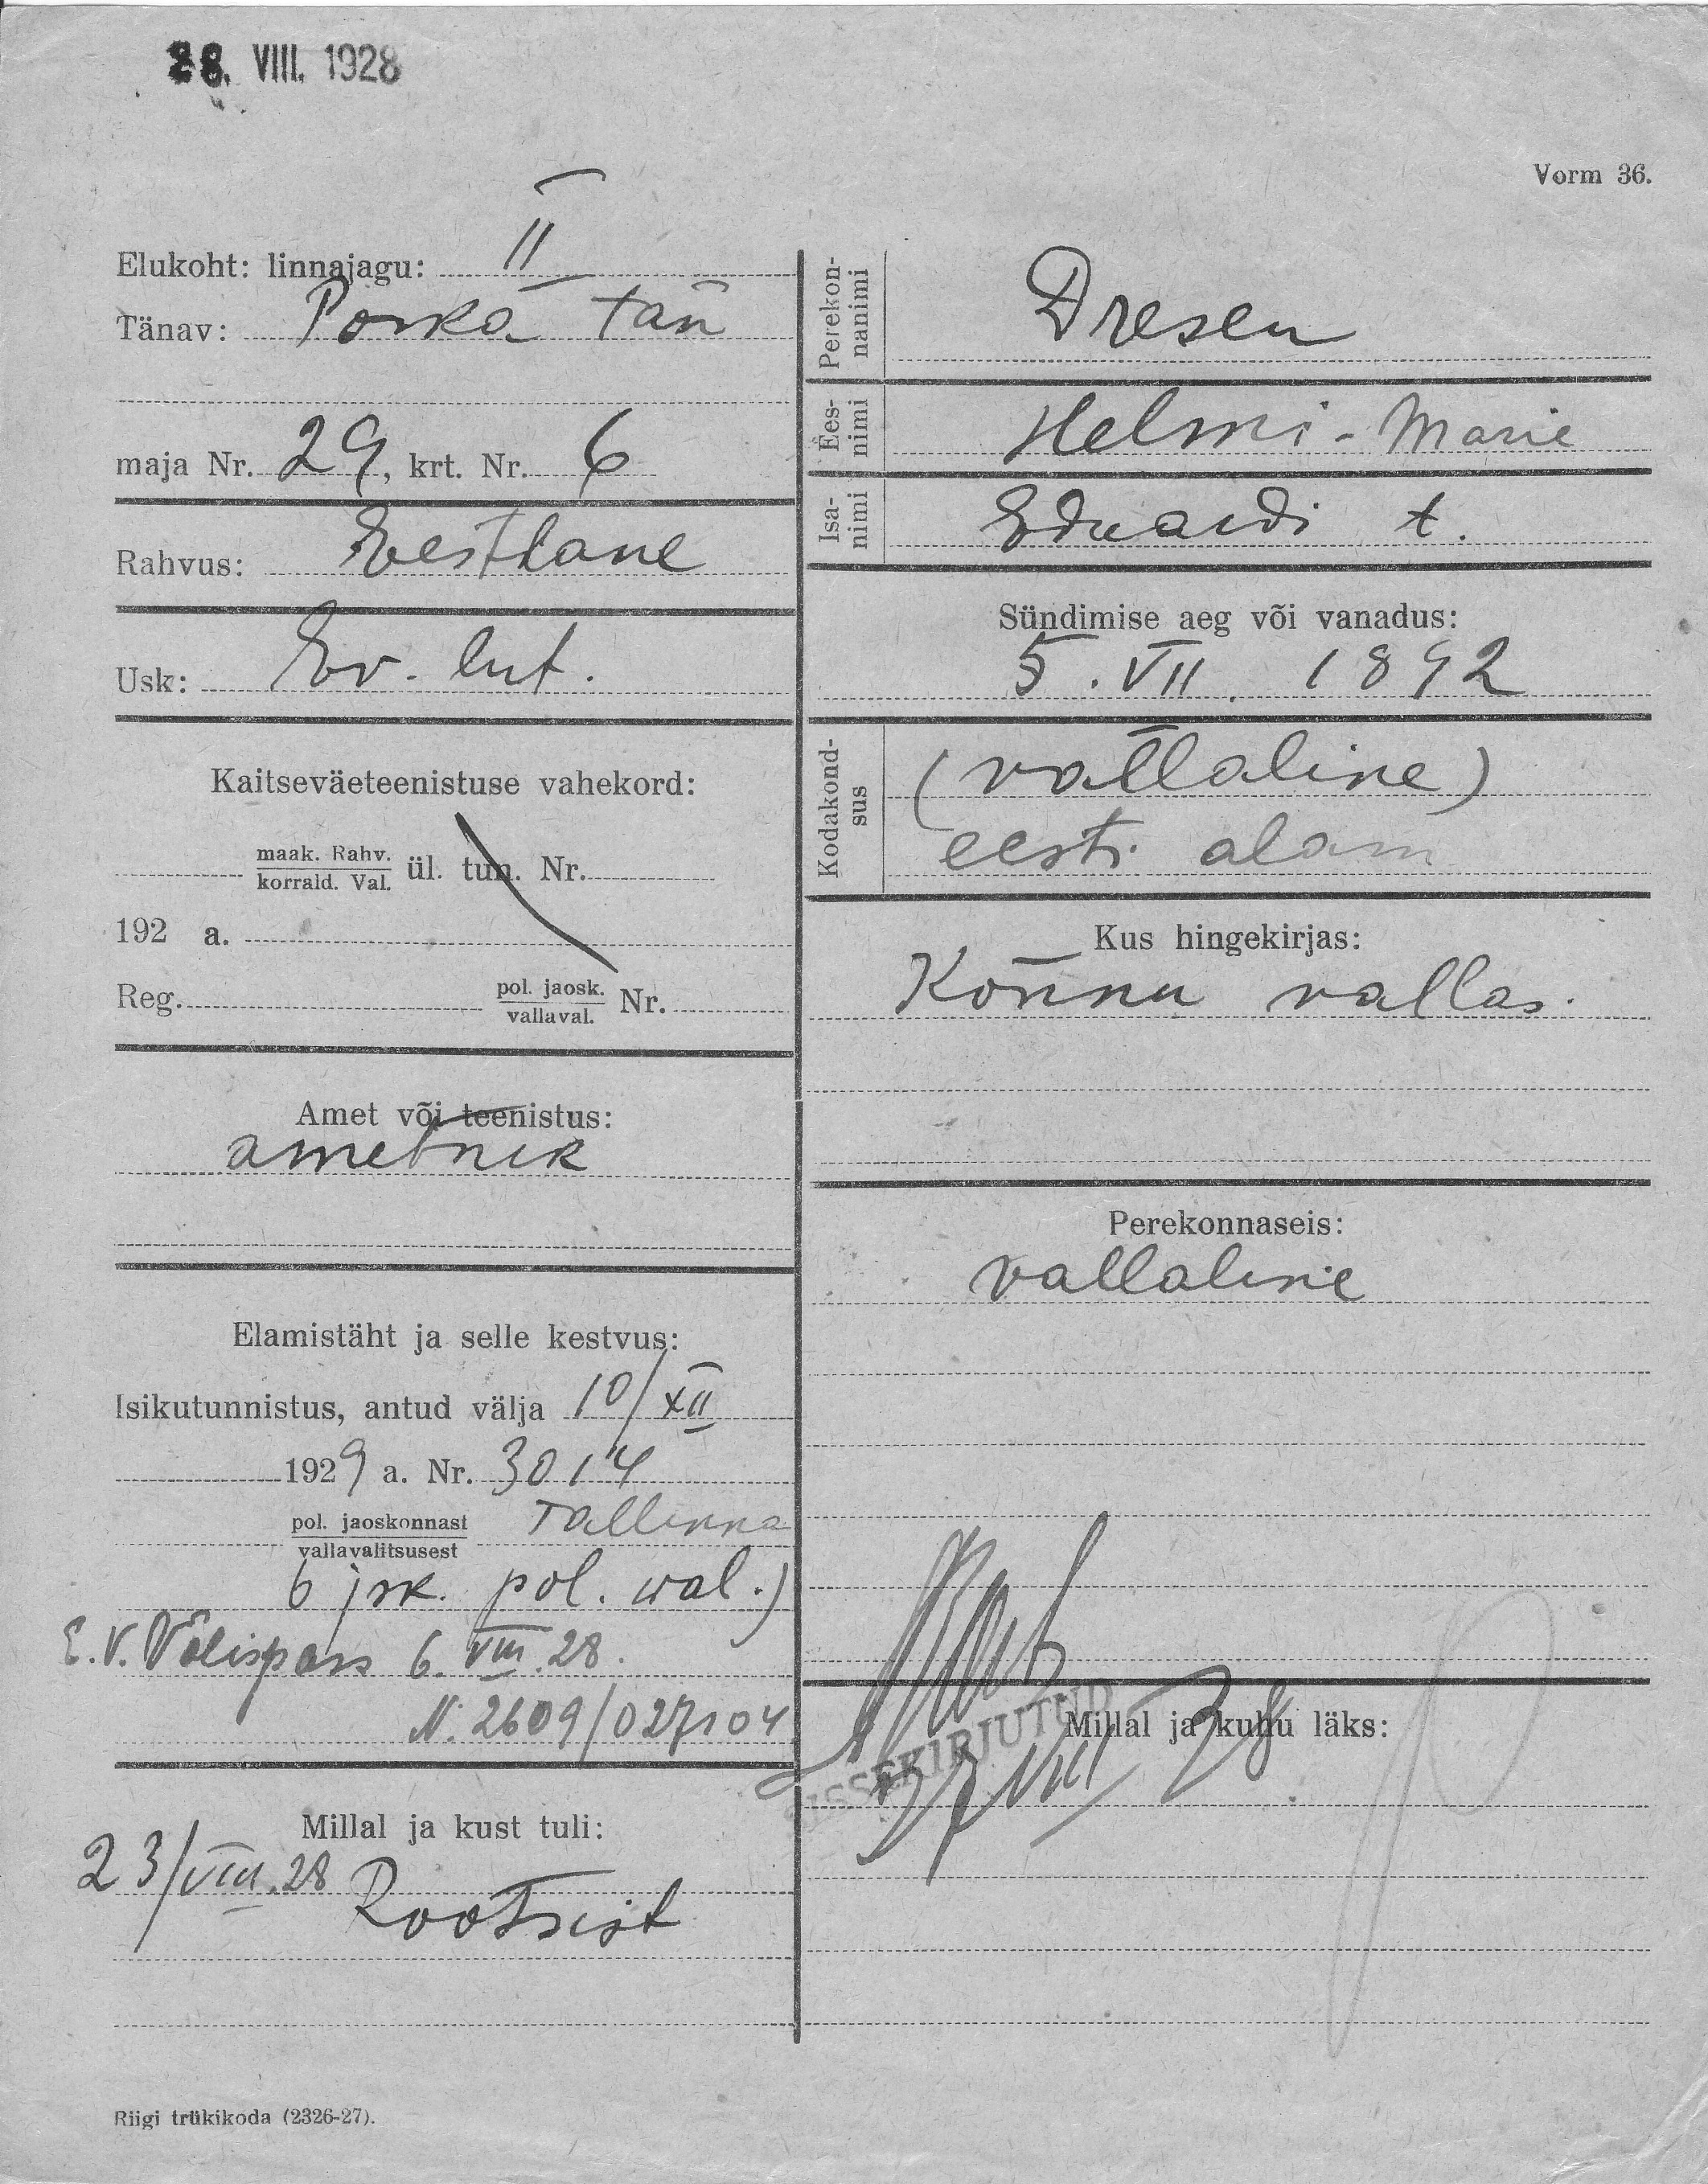 28. VIII. 1928
Vorm 36.
Elukoht: linnajagu: II
Tänav: Poska tän
maja Nr. 29, krt. Nr. 6
Rahvus: Eestlane
Usk: Ev. lut.
Kaitseväeteenistuse vahekord:
maak. Rahv.
korrald. Val. ül. tun. Nr.
192 a.
Reg. pol. jaosk.
vallaval. Nr.
Amet või teenistus:
ametnik
Elamistäht ja selle kestvus:
Isikutunnistus, antud välja 10/XII
1929 a. Nr. 3014
pol. jaoskonnast Tallinna
vallavalitsusest
6 jsk. pol. wal.)
E.V. Välispass 6. VIII. 28.
N. 2609/027104
Millal ja kust tuli:
23/VIII. 28 Rootsist
Perekon-
nanimi Dresen
Ees-
nimi Helmi-Marie
Isa-
nimi Eduardi t.
Sündimise aeg või vanadus:
5. VII. 1892
Kodakond-
sus (vallaline)
eesti alam
Kus hingekirjas:
Kõnnu vallas.
Perekonnaseis:
vallaline
SISSEKIRJUTUD
Millal ja kuhu läks:
Riigi trükikoda (2326-27).